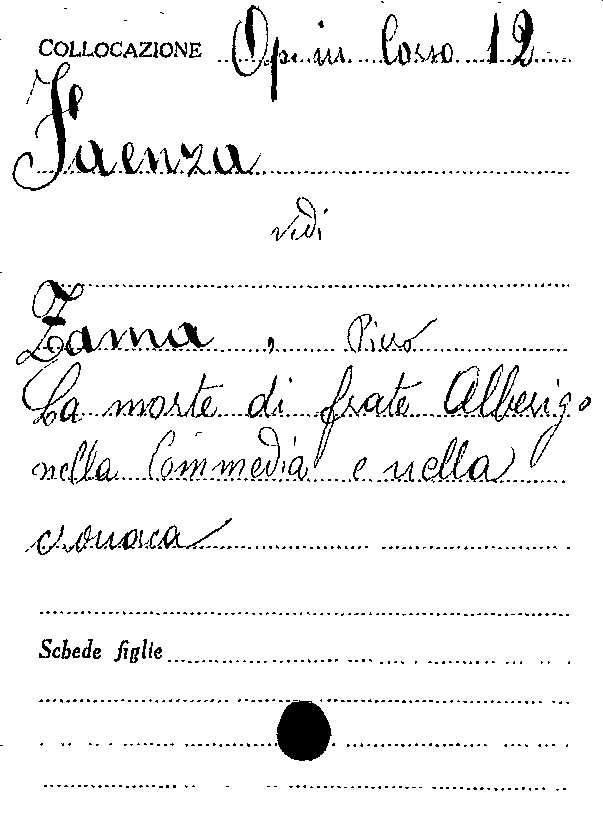 COLLOCAZIONE Op. in Corso 12
Faenza
vedi
Zama, Piero
La morte di frate Alberigo
nella Commedia e nella
cronaca
Schede figlie